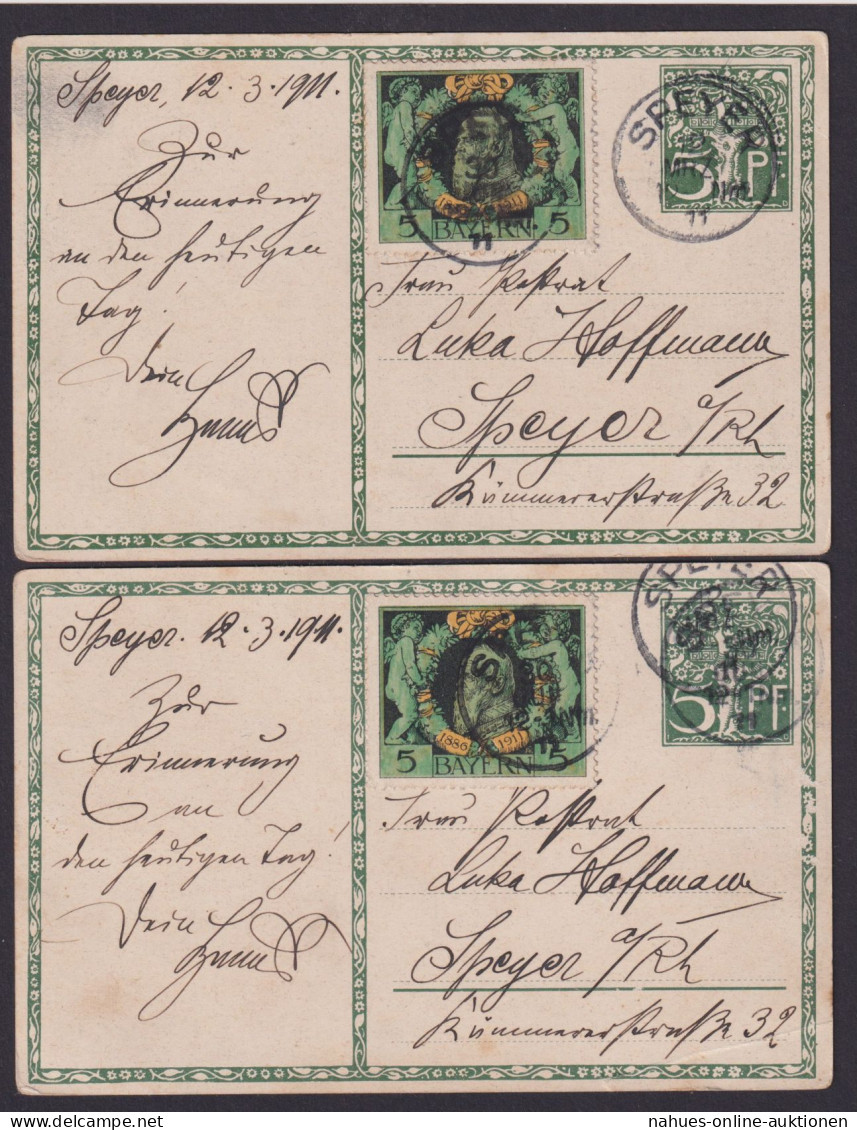 Speyer, 12.3.1911.
Zur
Erinnerung
an den heutigen
Tag!
Dein
Hanns
5 BAYERN. 5
SPEYER
12
MRZ
11
5 PF
Frau Postrat
Luka Hoffmann
Speyer a/Rh
Kämmererstraße 32
Speyer. 12.3.1911.
Zur
Erinnerung
an
den heutigen Tag!
Dein
Hanns
1886 1911
5 BAYERN. 5
SPEYER
11
5 PF
Frau Postrat
Luka Hoffmann
Speyer a/Rh
Kämmererstraße 32
nahues-online-auktionen.com